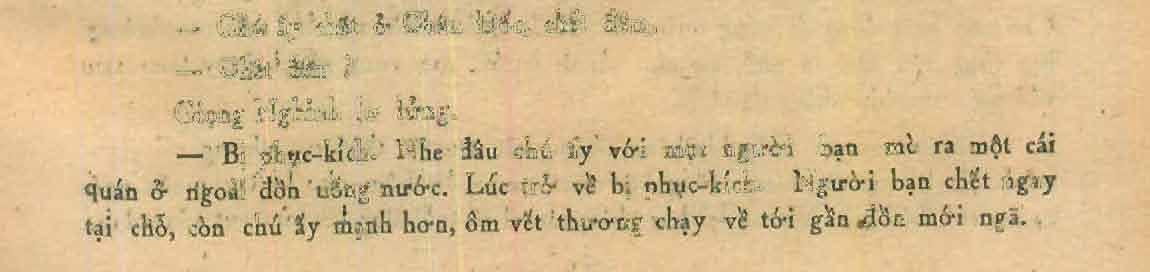 — Chú ấy chết ở
—
Giọng Nghinh lơ lửng.
— Bị phục-kích. Nghe đâu chú ấy với một người bạn mò ra một cái
quán ở ngoài đồn uống nước. Lúc trở về bị phục-kích. Người bạn chết ngay
tại chỗ, còn chú ấy mạnh hơn, ôm vết thương chạy về tới gần đồn mới ngã.